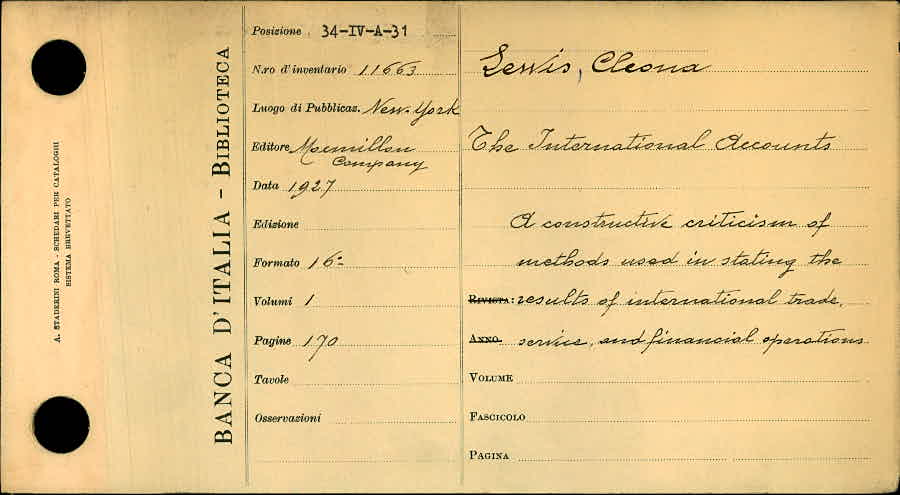 A. STADERINI ROMA - SCHEDARI PER CATALOGHI
SISTEMA BREVETTATO
BANCA D'ITALIA - BIBLIOTECA
Posizione 34-IV-A-31
N.ro d'inventario 11663
Luogo di Pubblicaz. New-York
Editore Macmillan
Company
Data 1927
Edizione
Formato 16º
Volumi 1
Pagine 170
Tavole
Osservazioni
Lewis, Cleona
The International Accounts
A constructive criticism of
methods used in stating the
RIVISTA: results of international trade,
ANNO service, and financial operations
VOLUME
FASCICOLO
PAGINA